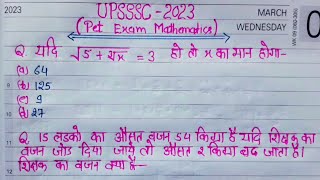 2023
UPSSSC-2023
MARCH
(Pet Exam Mathematics)
WEDNESDAY
Q. यदि √5+∜x = 3 हो तो x का मान होगा-
(a) 64
(b) 125
(c) 9
(d) 27
Q. 15 लडको का औसत वजन 54 किग्रा है यदि शिक्षक का
वजन जोड दिया जाये तो औसत 2 किग्रा बढ जाता है।
शिक्षक का वजन क्या है-